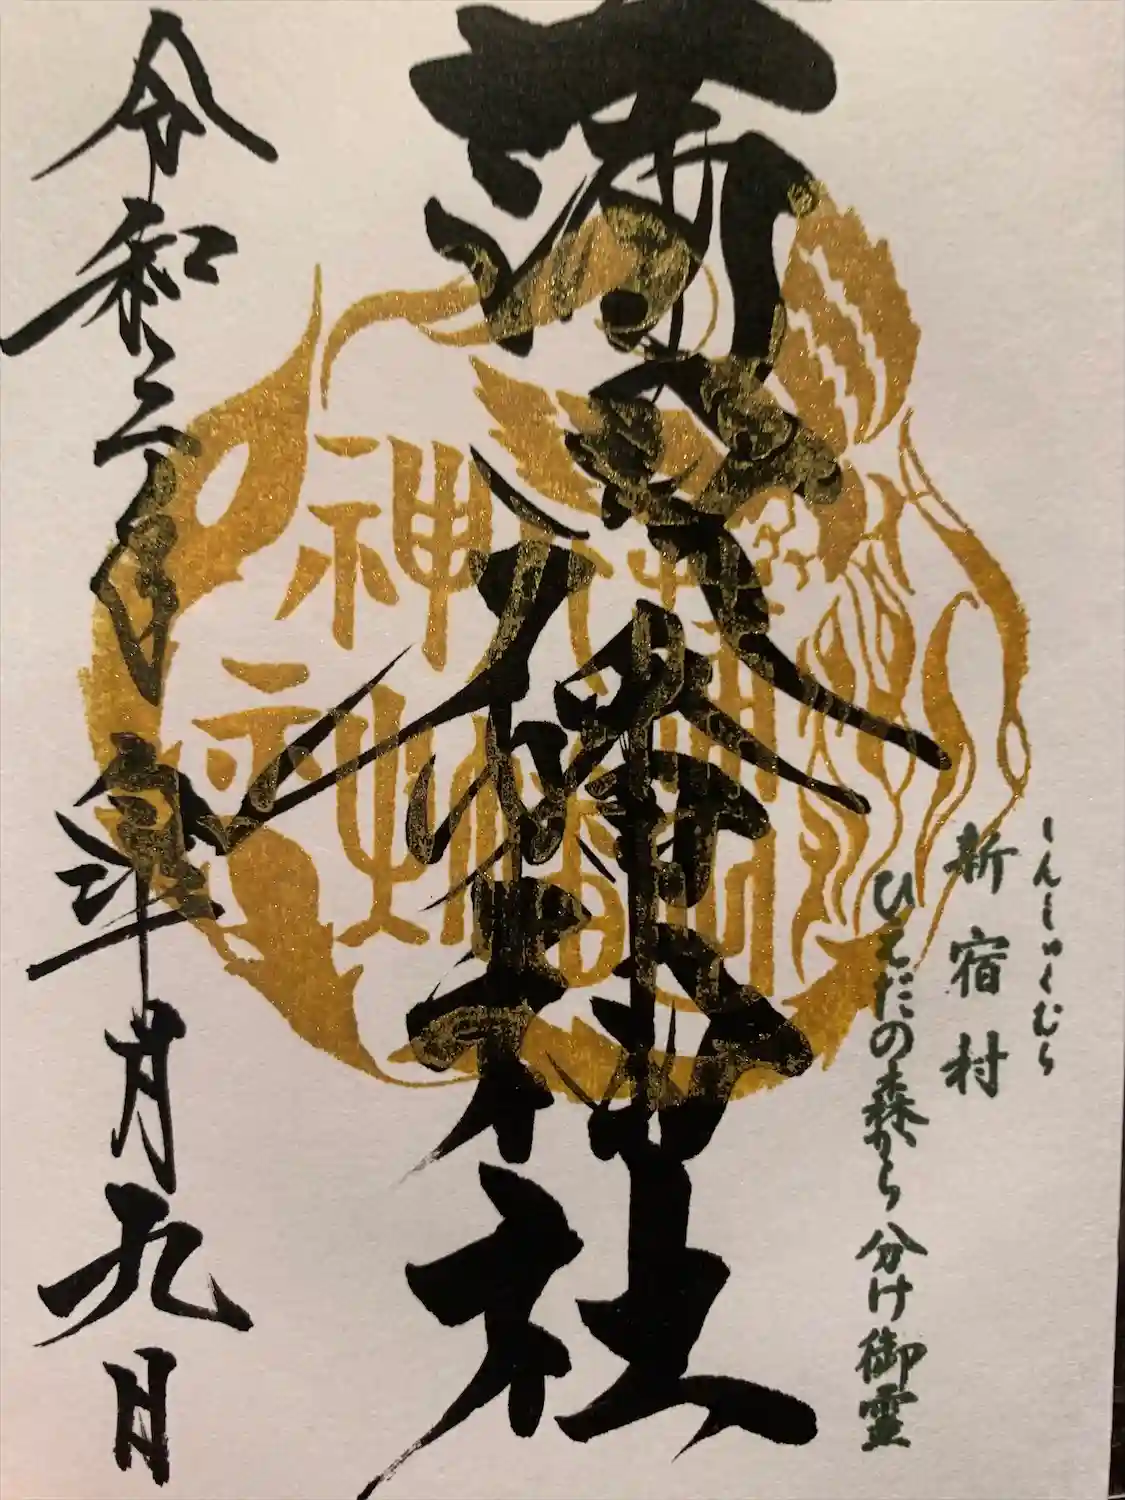 しんしゅくむら
新宿村
ひえだの森から分け御霊
蒲田八幡神社
神社
令和三年 月九日